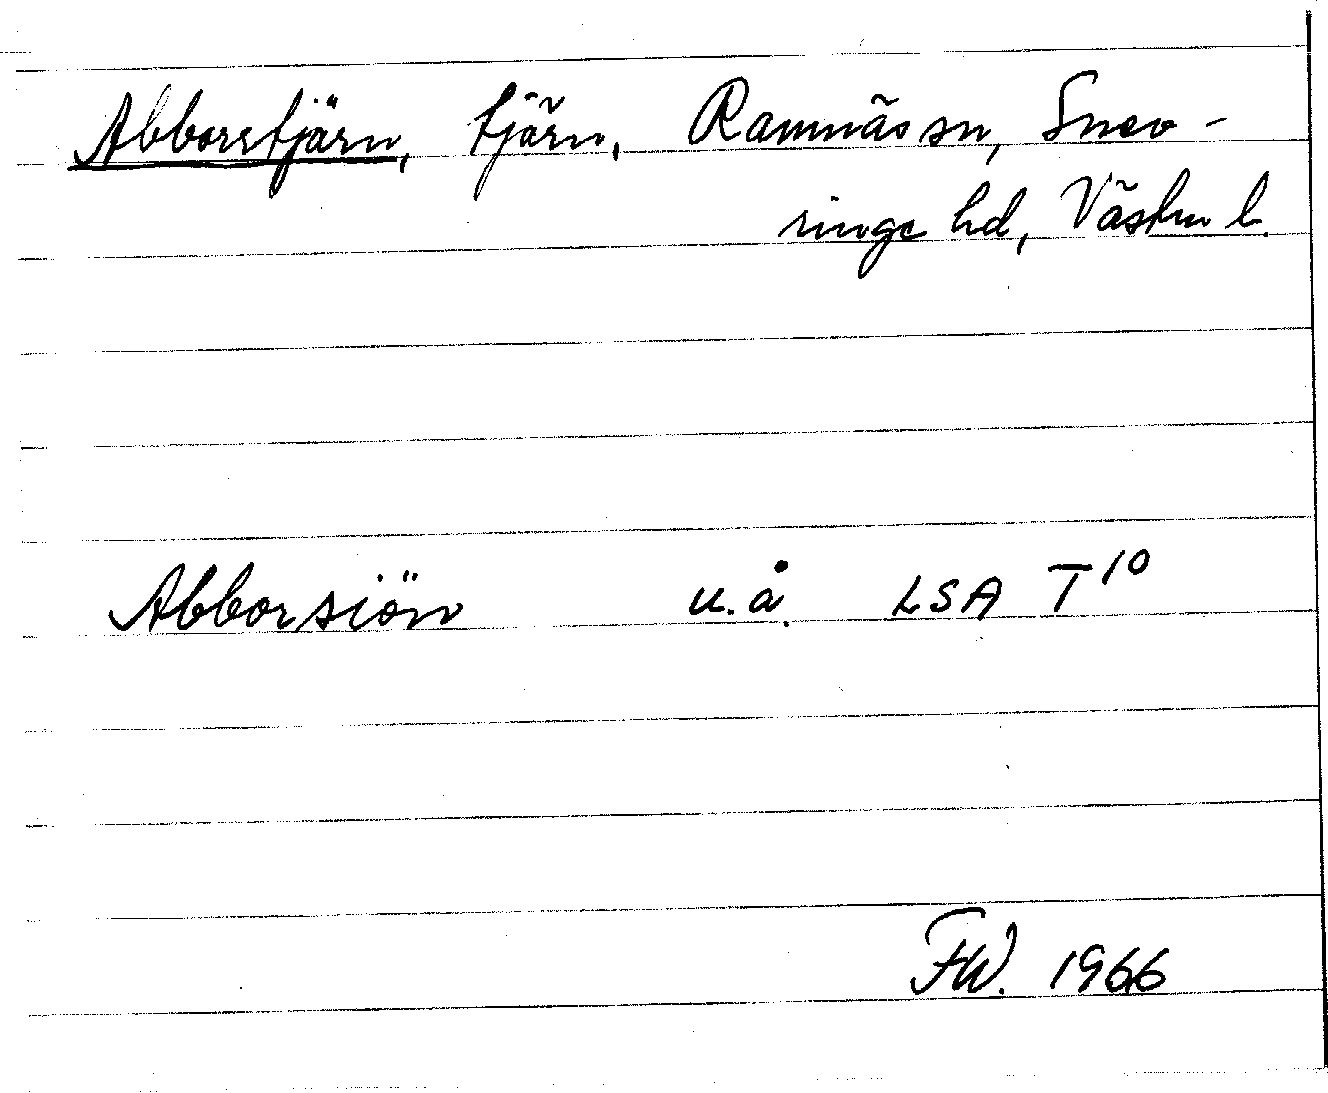 Abborrtjärn, tjärn, Ramnäs sn, Snev-
ringe hd, Västm l.
Abborsiön u.å. LSA T 10
FW. 1966